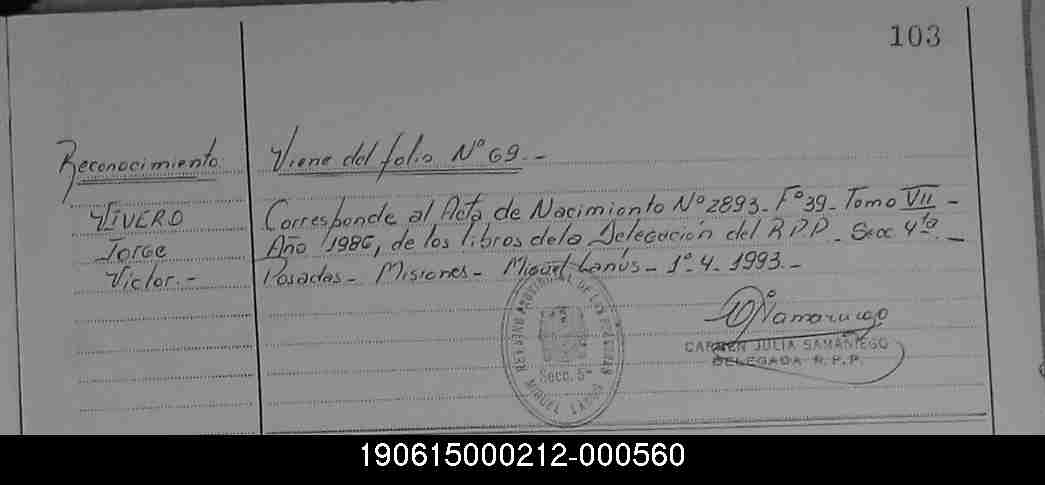 103
Reconocimiento
Viene del folio Nº 69.-
VIVERO
Jorge
Víctor.-
Corresponde al Acta de Nacimiento Nº 2893- Fº 39- Tomo VII -
Año 1986, de los libros de la Delegación del R.P.P. Secc 4ta. -
Posadas- Misiones- Miguel Lanús- 1º.4. 1993.-
CARMEN JULIA SAMANIEGO
DELEGADA R.P.P.
PROVINCIAL DE LAS PERSONAS
Secc. 5ª
MIGUEL LANUS
190615000212-000560